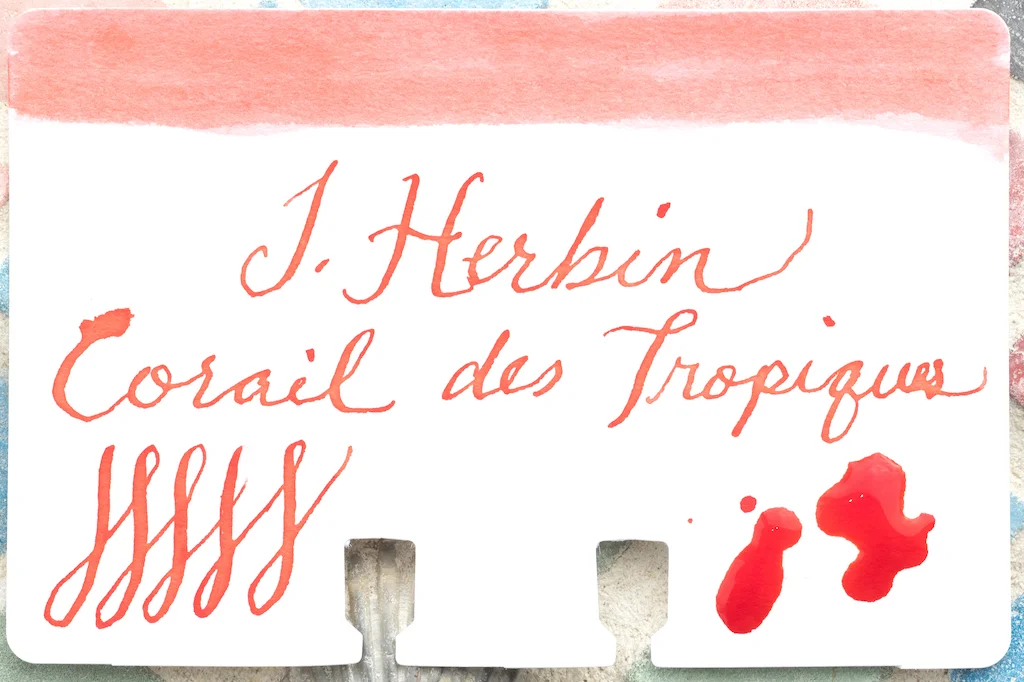 J. Herbin
Corail des Tropiques